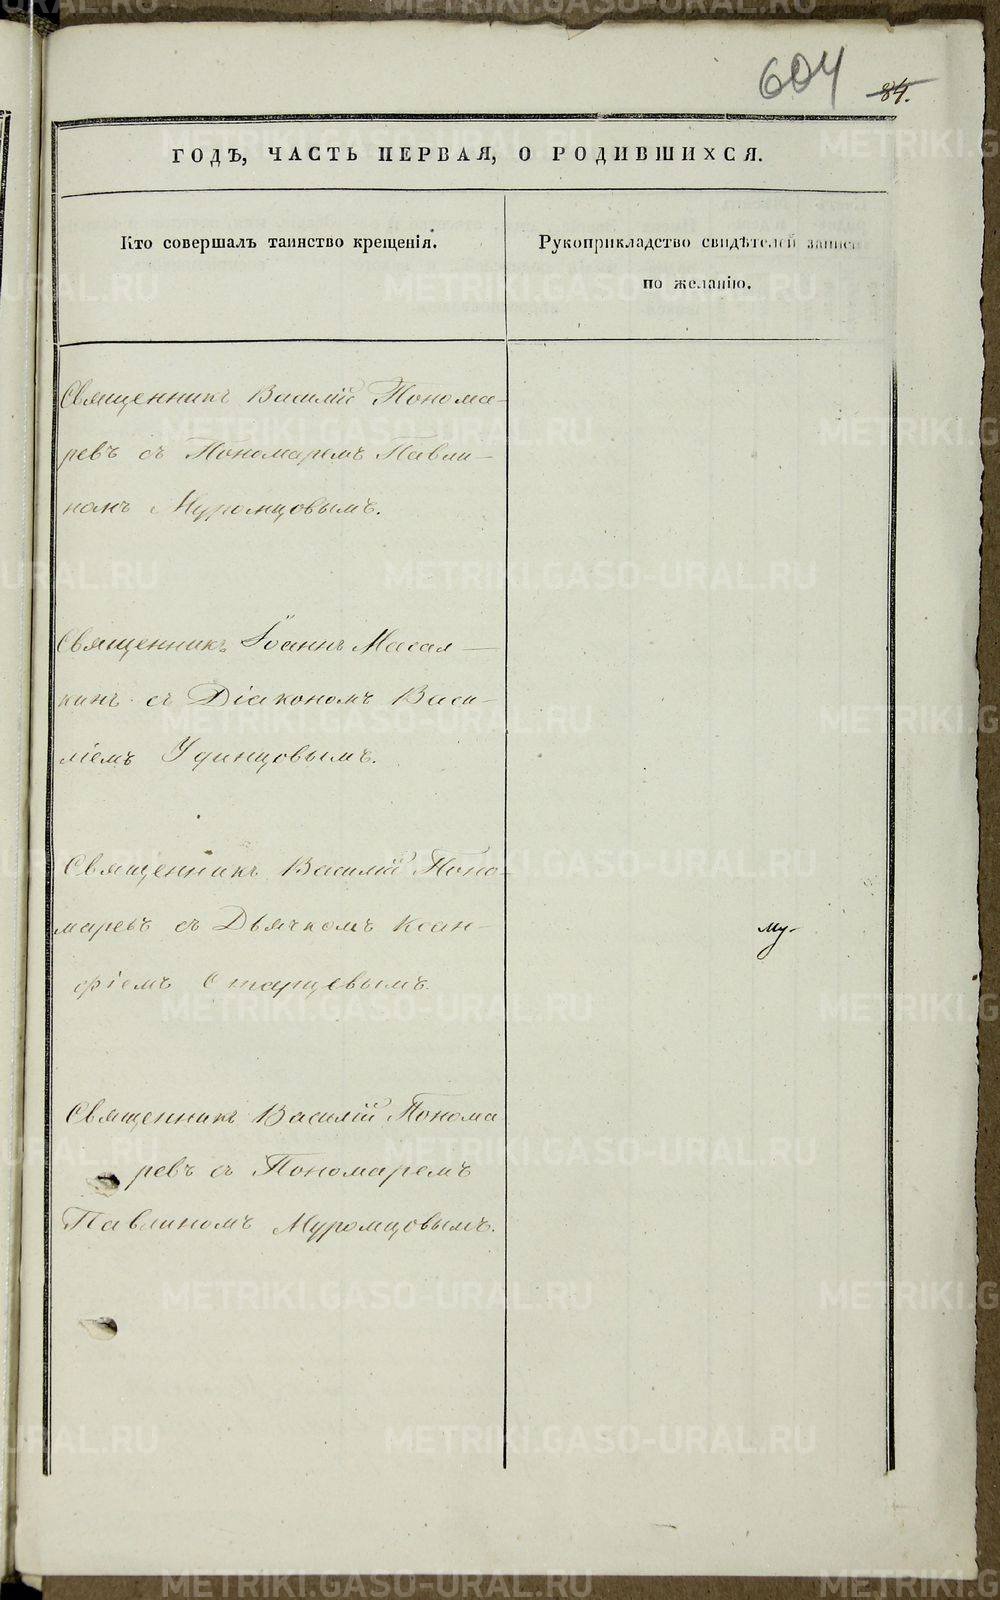 604 84.
ГОДЪ, ЧАСТЬ ПЕРВАЯ, О РОДИВШИХСЯ.
Кто совершалъ таинство крещенія.
Рукоприкладство свидѣтелей записи
по желанію.
Священникъ Василій Понома-
ревъ съ Пономаремъ Павли-
номъ Муромцовымъ.
Священникъ Іоаннъ Масал-
кинъ съ Діакономъ Васи-
ліемъ Удинцовымъ.
Священникъ Василій Поно-
маревъ съ Дьячкомъ Ксан-
фіемъ Старцевымъ.
му-
Священникъ Василій Понома
ревъ съ Пономаремъ
Павлиномъ Муромцовымъ.
METRIKI.GASO-URAL.RU